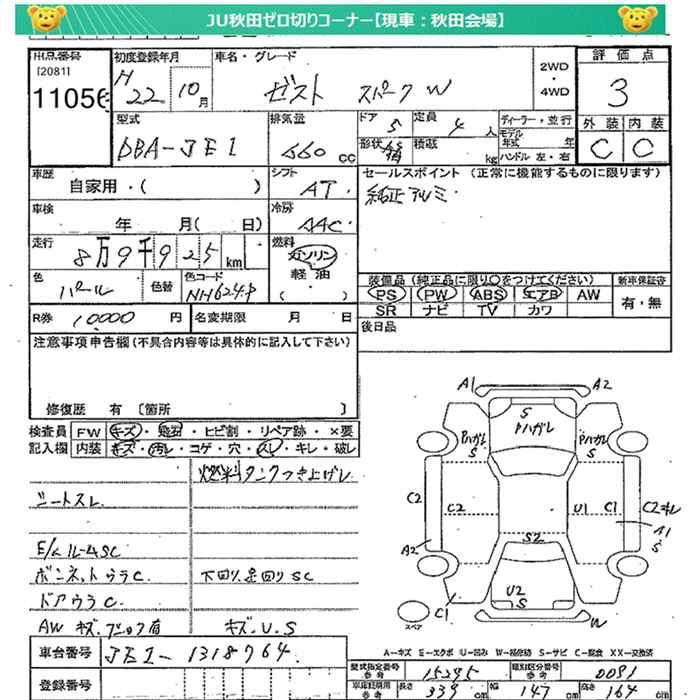 JU秋田ゼロ切りコーナー【現車：秋田会場】
出品番号 [2081] 11056
初度登録年月 H22 10月
車名・グレード ゼスト スパーク W
2WD・4WD
評価点 3
外装 C 内装 C
型式 DBA-JE1
排気量 660 cc
ドア 5 定員 4 人
形状 積載 kg
ディーラー・並行
モデル年式 年
ハンドル 左・右
車歴 自家用・( )
シフト AT
セールスポイント (正常に機能するものに限ります)
純正アルミ
車検 年 月( 日)
冷房 AAC
走行 8万9千925 km
燃料 ガソリン 軽油 ( )
色 パール 色替 色コード NH624P
装備品 (純正品に限り○をつけてください)
PS PW ABS エアB AW
SR ナビ TV カワ
新車保証書 有・無
R券 10,000 円 名変期限 月 日
後日品
注意事項申告欄 (不具合内容等は具体的に記入して下さい)
修復歴 有 〔箇所 〕
検査員記入欄
FW キズ・飛石・ヒビ割・リペア跡・×要
内装 キズ・汚レ・コゲ・穴・スレ・キレ・破レ
燃料タンクつき上げし
シートスレ
E/ルームSC
ボンネットウラC. 下回り足回りSC
ドアウラC.
AW キズ. キズ.U.S
車台番号 JE1-1318764
登録番号
A1 A2
S Pハガレ
Pハガレ S
Pハガレ S
C2 C2 U1 C1 C2キレ
A1 S
A2 S2
U2 S
C1 W
スペア
A-キズ E-エクボ U-凹み W-補修跡 S-サビ C-腐食 XX-交換済
型式指定番号 参考 15295 類別区分番号 参考 0091
車庫証明用 参考 長さ 339 cm 幅 147 cm 高さ 164 cm